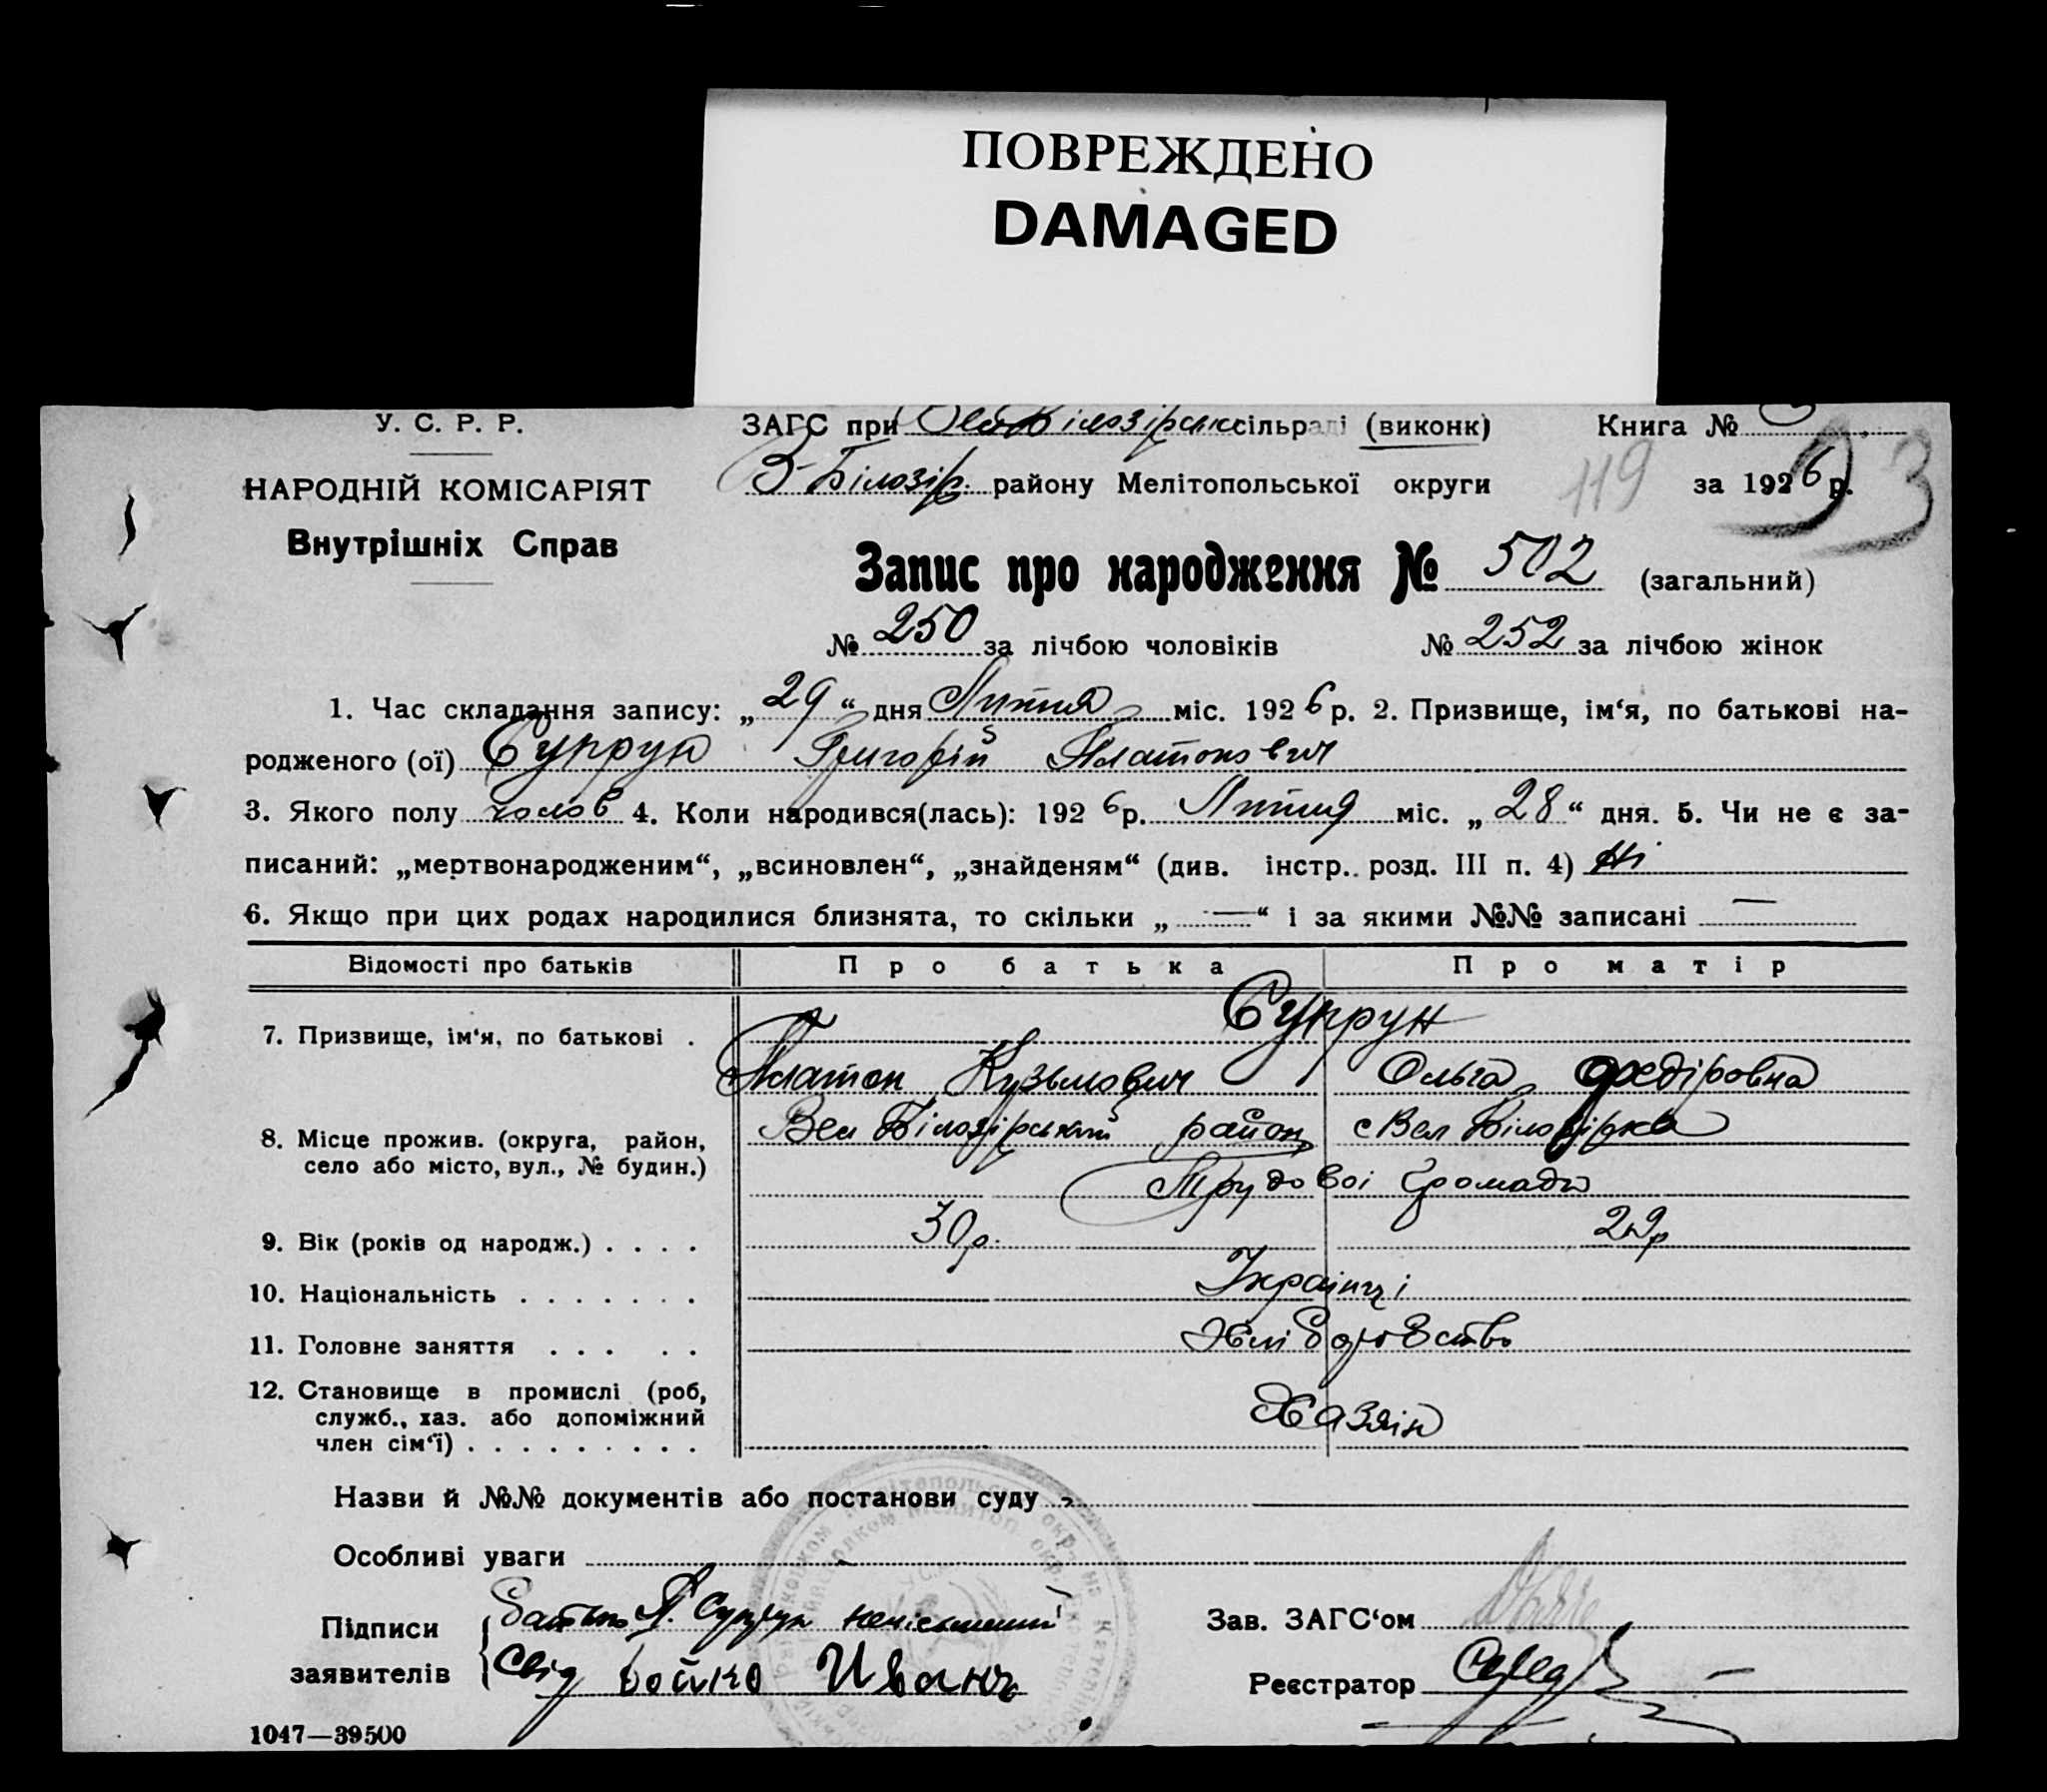 ПОВРЕЖДЕНО
DAMAGED
У. С. Р. Р.
НАРОДНІЙ КОМІСАРІЯТ
Внутрішніх Справ
ЗАГС при Вел Білозірськ сільраді (виконк)
Книга №
В-Білозір. району Мелітопольської округи
119
за 1926 р.
93
Запис про народження № 502 (загальний)
№ 250 за лічбою чоловіків № 252 за лічбою жінок
1. Час складання запису: „29“ дня Липня міс. 1926 р. 2. Призвище, ім‘я, по батькові на-
родженого (ої) Супрун Григорій Платонович
3. Якого полу чолов 4. Коли народився(лась): 1926 р. Липня міс. „28“ дня. 5. Чи не є за-
писаний: „мертвонародженим“, „всиновлен“, „знайденям“ (див. інстр.. розд. III п. 4) Ні
6. Якщо при цих родах народилися близнята, то скільки „ — “ і за якими №№ записані —
Відомості про батьків Про батька Про матір
7. Призвище, ім‘я, по батькові . Супрун
Платон Кузьмович Ольга Федіровна
8. Місце прожив. (округа, район, Вел Білозірський район с Вел Білозірка
село або місто, вул., № будин.) Трудовоі Громади
9. Вік (років од народж.) . . . . 30р. 29р
10. Національність . . . . . . . Українці
11. Головне заняття . . . . . Хліборобство
12. Становище в промислі (роб,
служб., хаз. або допоміжний Хазяін
член сім‘ї) . . . . . . . . .
Назви й №№ документів або постанови суду
Особливі уваги
Підписи Батько П. Супрун неписьменний Зав. ЗАГС‘ом
заявителів Свід Бойко Иванъ Реєстратор
1047—39500